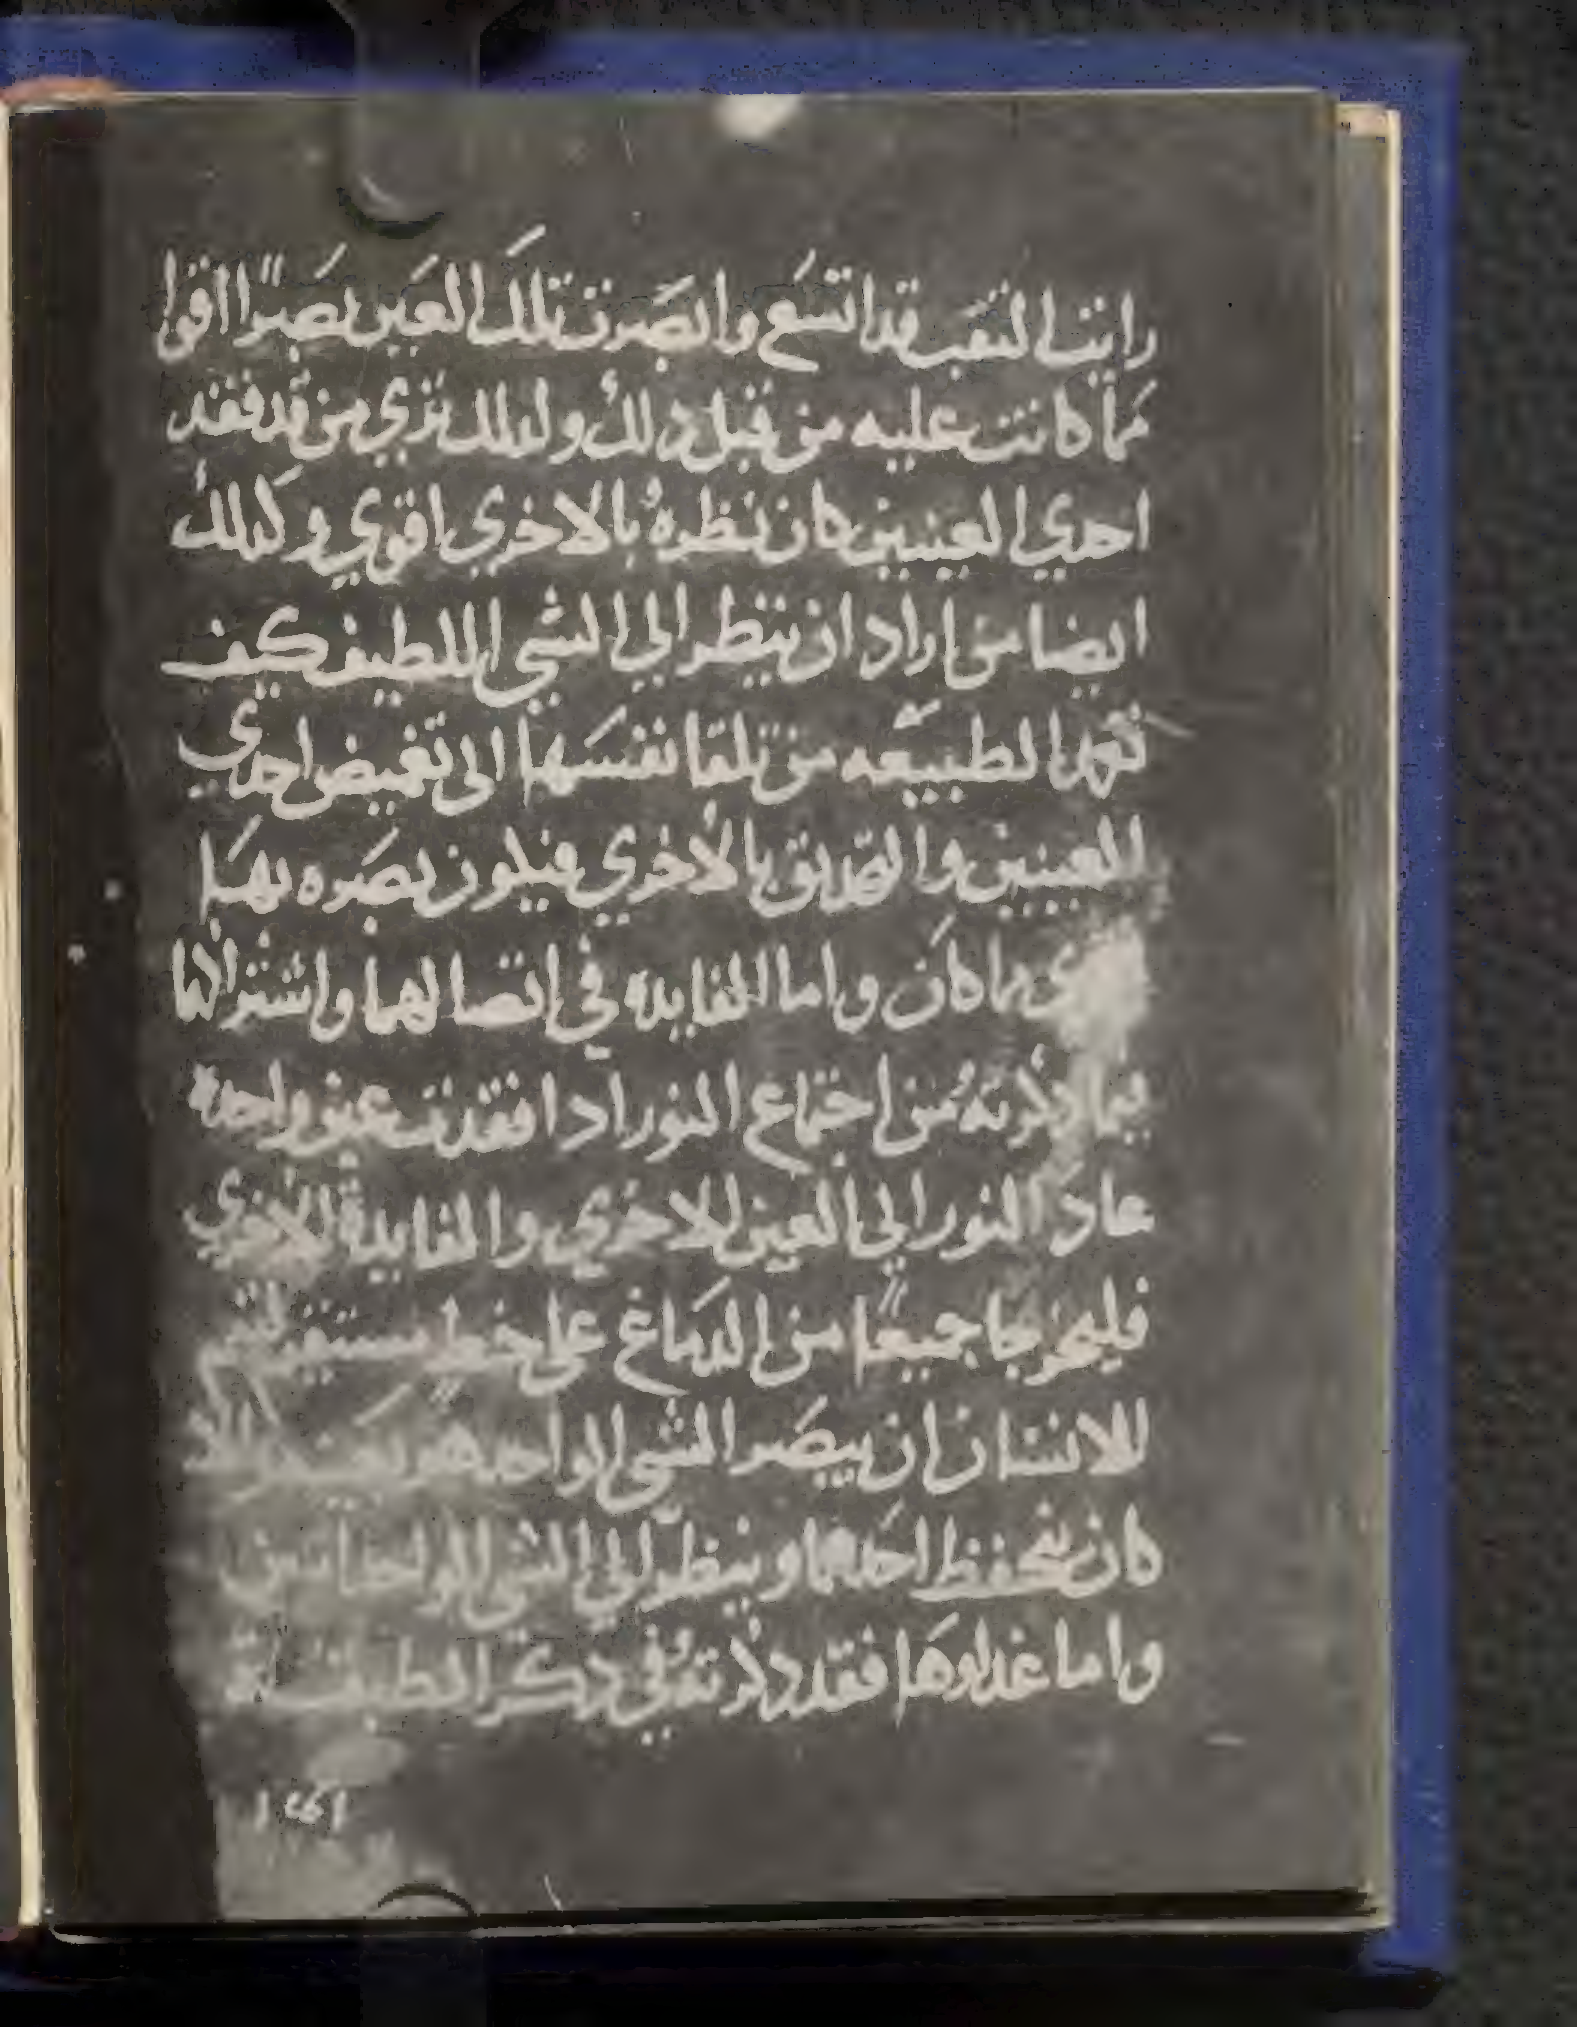 رايت الثقب قد اتسع وابصرت تلك العين بصرًا اقوا
مما كانت عليه من قبل ذلك ولذلك نري من قد فقد
احدي العينين كان نظره بالاخري اقوي وكذلك
ايضا من اراد ان ينظر الي الشي اللطيف كيف
الطبيعه من تلقا نفسها الى تغميض احدي
العينين والتحديق بالاخري فيكون بصره بها
ما كان واما الفايده في اتصالهما واشتراكهما
فيما ذكرته من اجتماع النور اذا فقدت عين واحده
عاد النور الي العين الاخري والفايدة الاخري
فليخرجا جميعًا من الدماغ على خط مستقيم
للانسان ان يبصر الشي الواحد
كان احدهما وينظر الي الشي الواحد
واما غذاوها فقد ذكرته في ذكر الطبقات